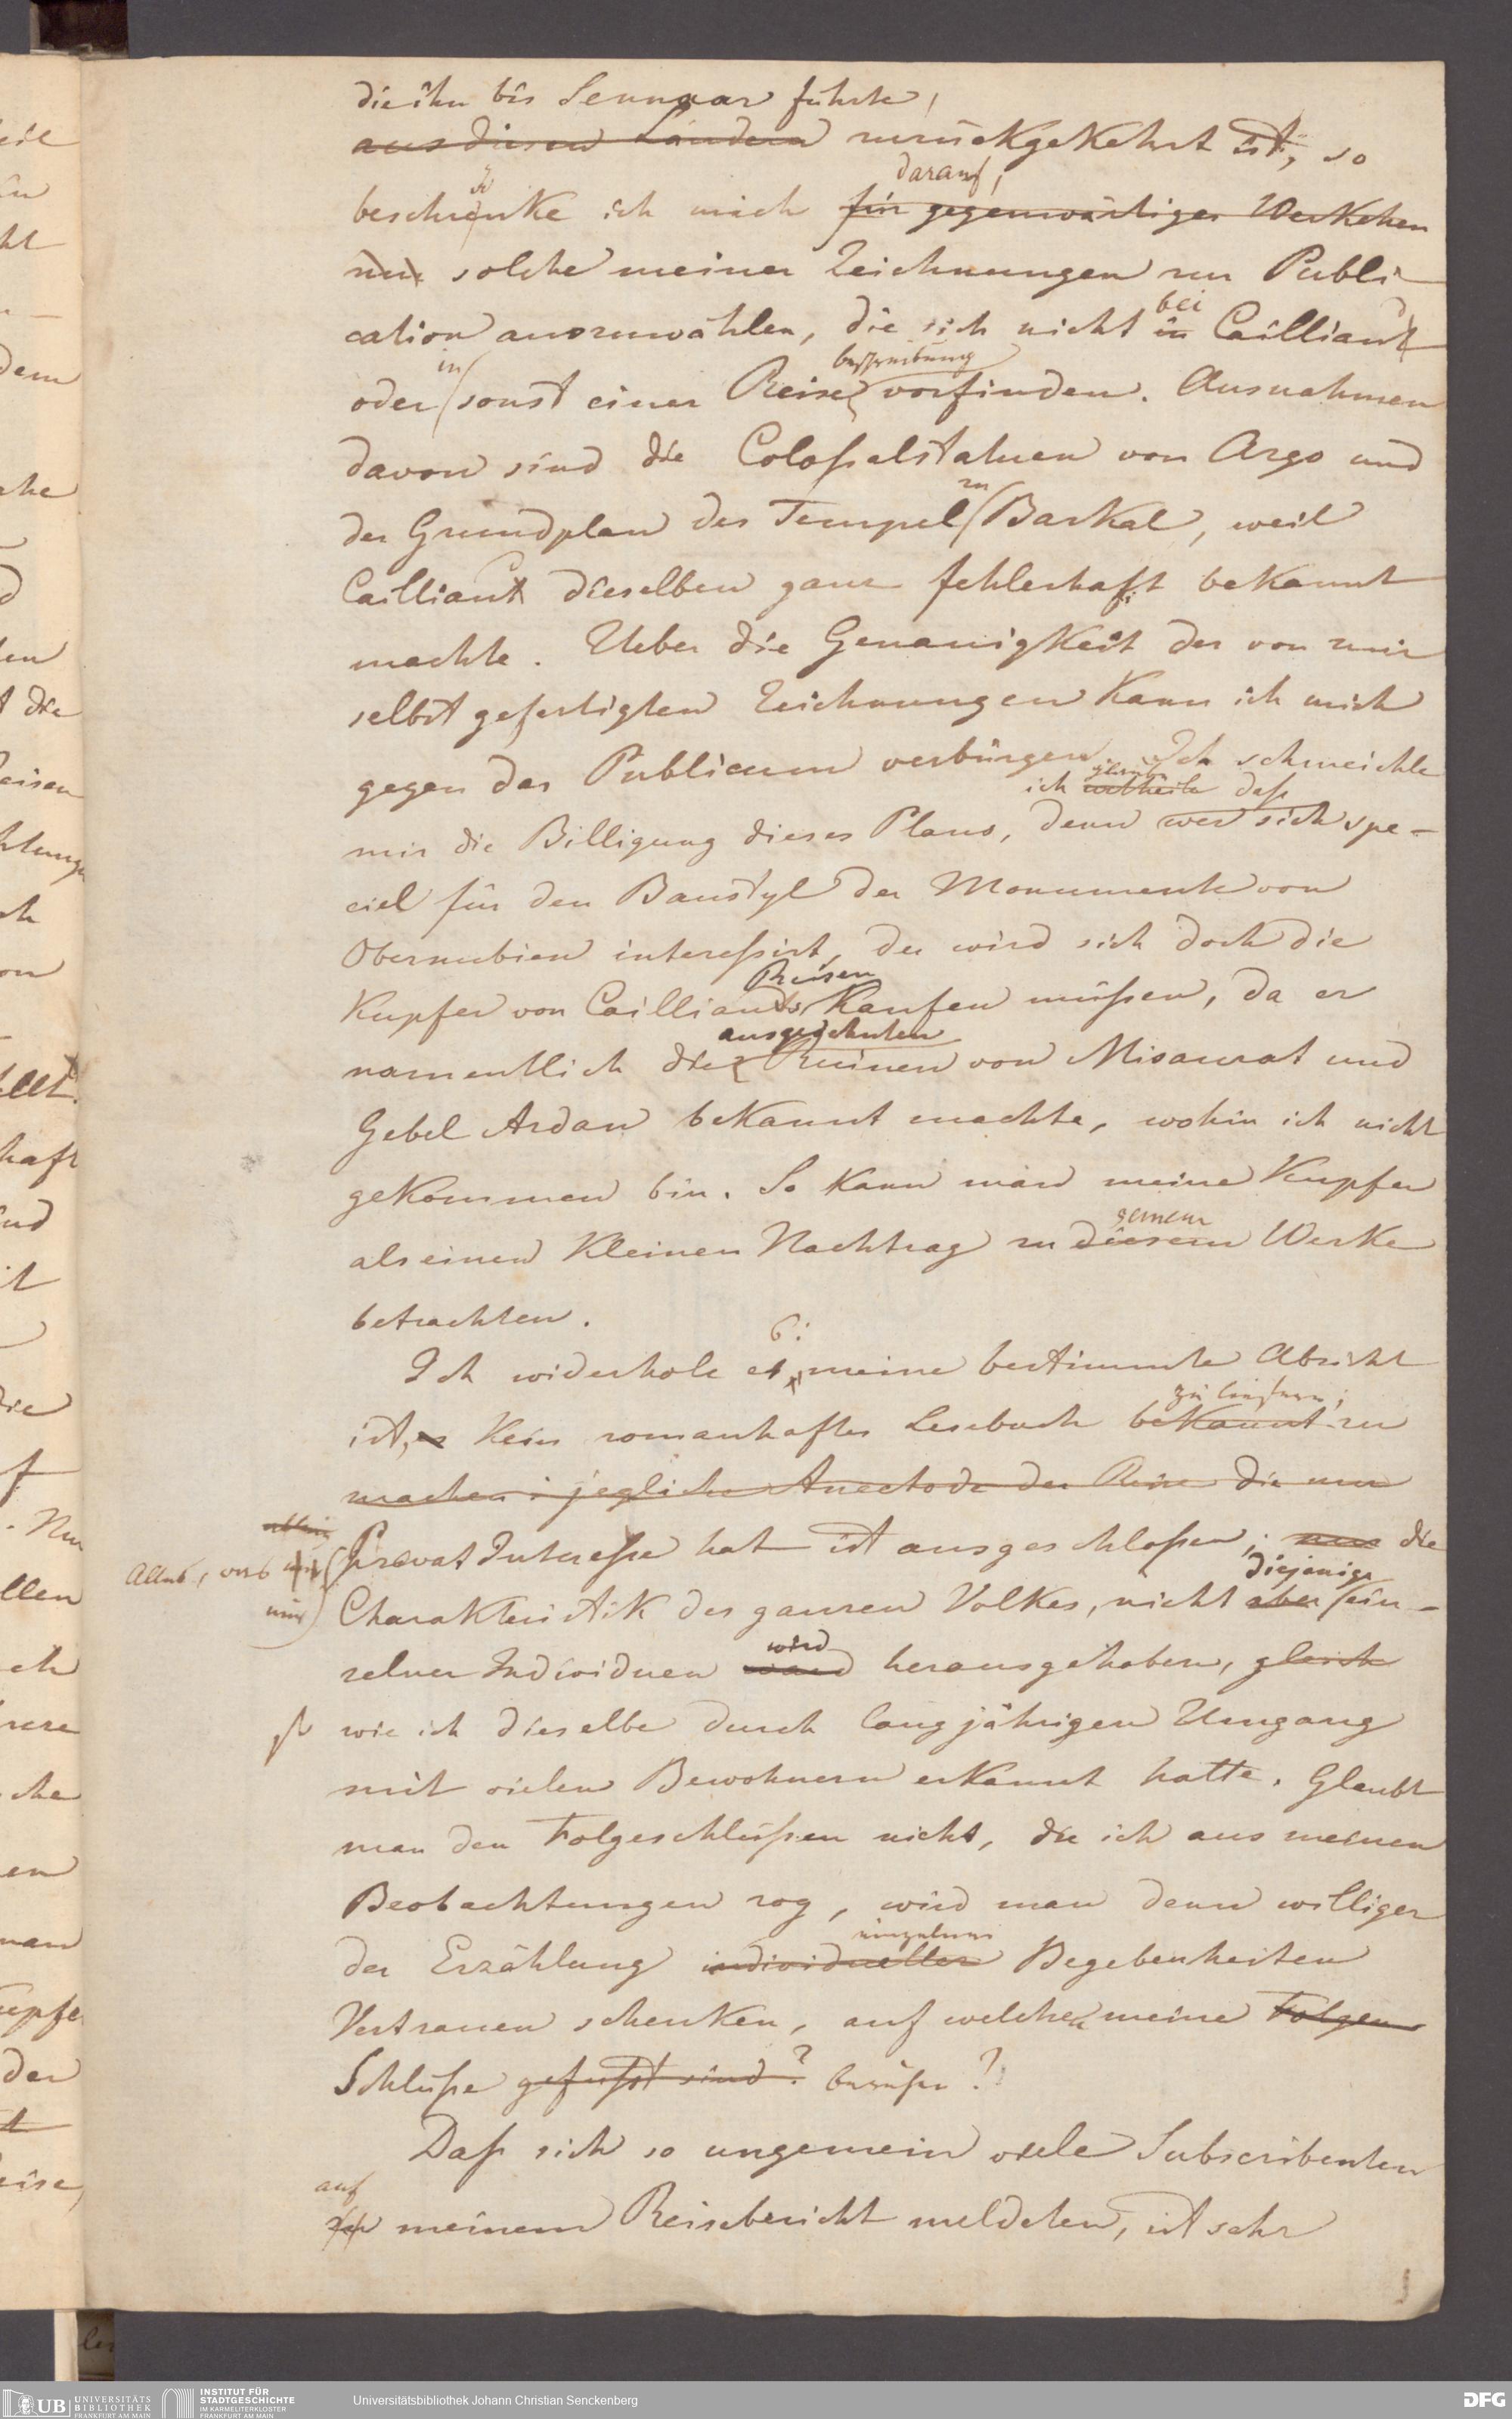 die ihn bis Sennaar führte,
aus diesen Ländern zurückgekehrt ist, so
darauf,
beschränke ich mich für gegenwärtiges Werkchen
nur solche meiner Zeichnungen zur Publi-
cation auszuwählen, die sich nicht in bei Cailliaud
oder in sonst einer Reise beschreibung vorfinden. Ausnahmen
davon sind die Coloßalstatuen von Argo und
der Grundplan des Tempel zu Barkal, weil
Cailliaud dieselben ganz fehlerhaft bekannt
machte. Ueber die Genauigkeit der von mir
selbst gefertigten Zeichnungen kann ich mich
gegen das Publicum verbürgen. Ich schmeichle
ich urtheile glaube daß
mir die Billigung dieses Plans, denn wer sich spe-
ciel für den Baustyl der Monumente von
Obernubien interessirt, der wird sich doch die
Kupfer von Cailliauds Reisen kaufen müßen, da er
namentlich die ausgedehnten Ruinen von Misaurat und
Gebel Ardan bekannt machte, wohin ich nicht
gekommen bin. So kann man meine Kupfer
als einen kleinen Nachtrag zu diesem seinem Werke
betrachten.
Ich widerhole es, meine bestimmte Absicht
ist, kein romanhaftes Lesebuch bekannt zu zu liefern;
machen; jegliche Anectode der Reise die nur
Alles, was nur
Privat Interesse hat ist ausgeschloßen; nur die
Charakteristik des ganzen Volkes, nicht aber diejenige ein-
zelner Individuen ward wird herausgehoben, gleich
so wie ich dieselbe durch langjährigen Umgang
mit vielen Bewohnern erkannt hatte. Glaubt
man den Folgeschlüßen nicht, die ich aus meinen
Beobachtungen zog, wird man denn williger
der Erzählung individueller einzelner Begebenheiten
Vertrauen schenken, auf welchen meine Folgen
Schlüße gefußt sind? beruhen?
Daß sich so ungemein viele Subscribenten
auf
zu meinem Reisebericht meldeten, ist sehr
UB UNIVERSITÄTS BIBLIOTHEK FRANKFURT AM MAIN
INSTITUT FÜR STADTGESCHICHTE IM KARMELITERKLOSTER FRANKFURT AM MAIN
Universitätsbibliothek Johann Christian Senckenberg
DFG